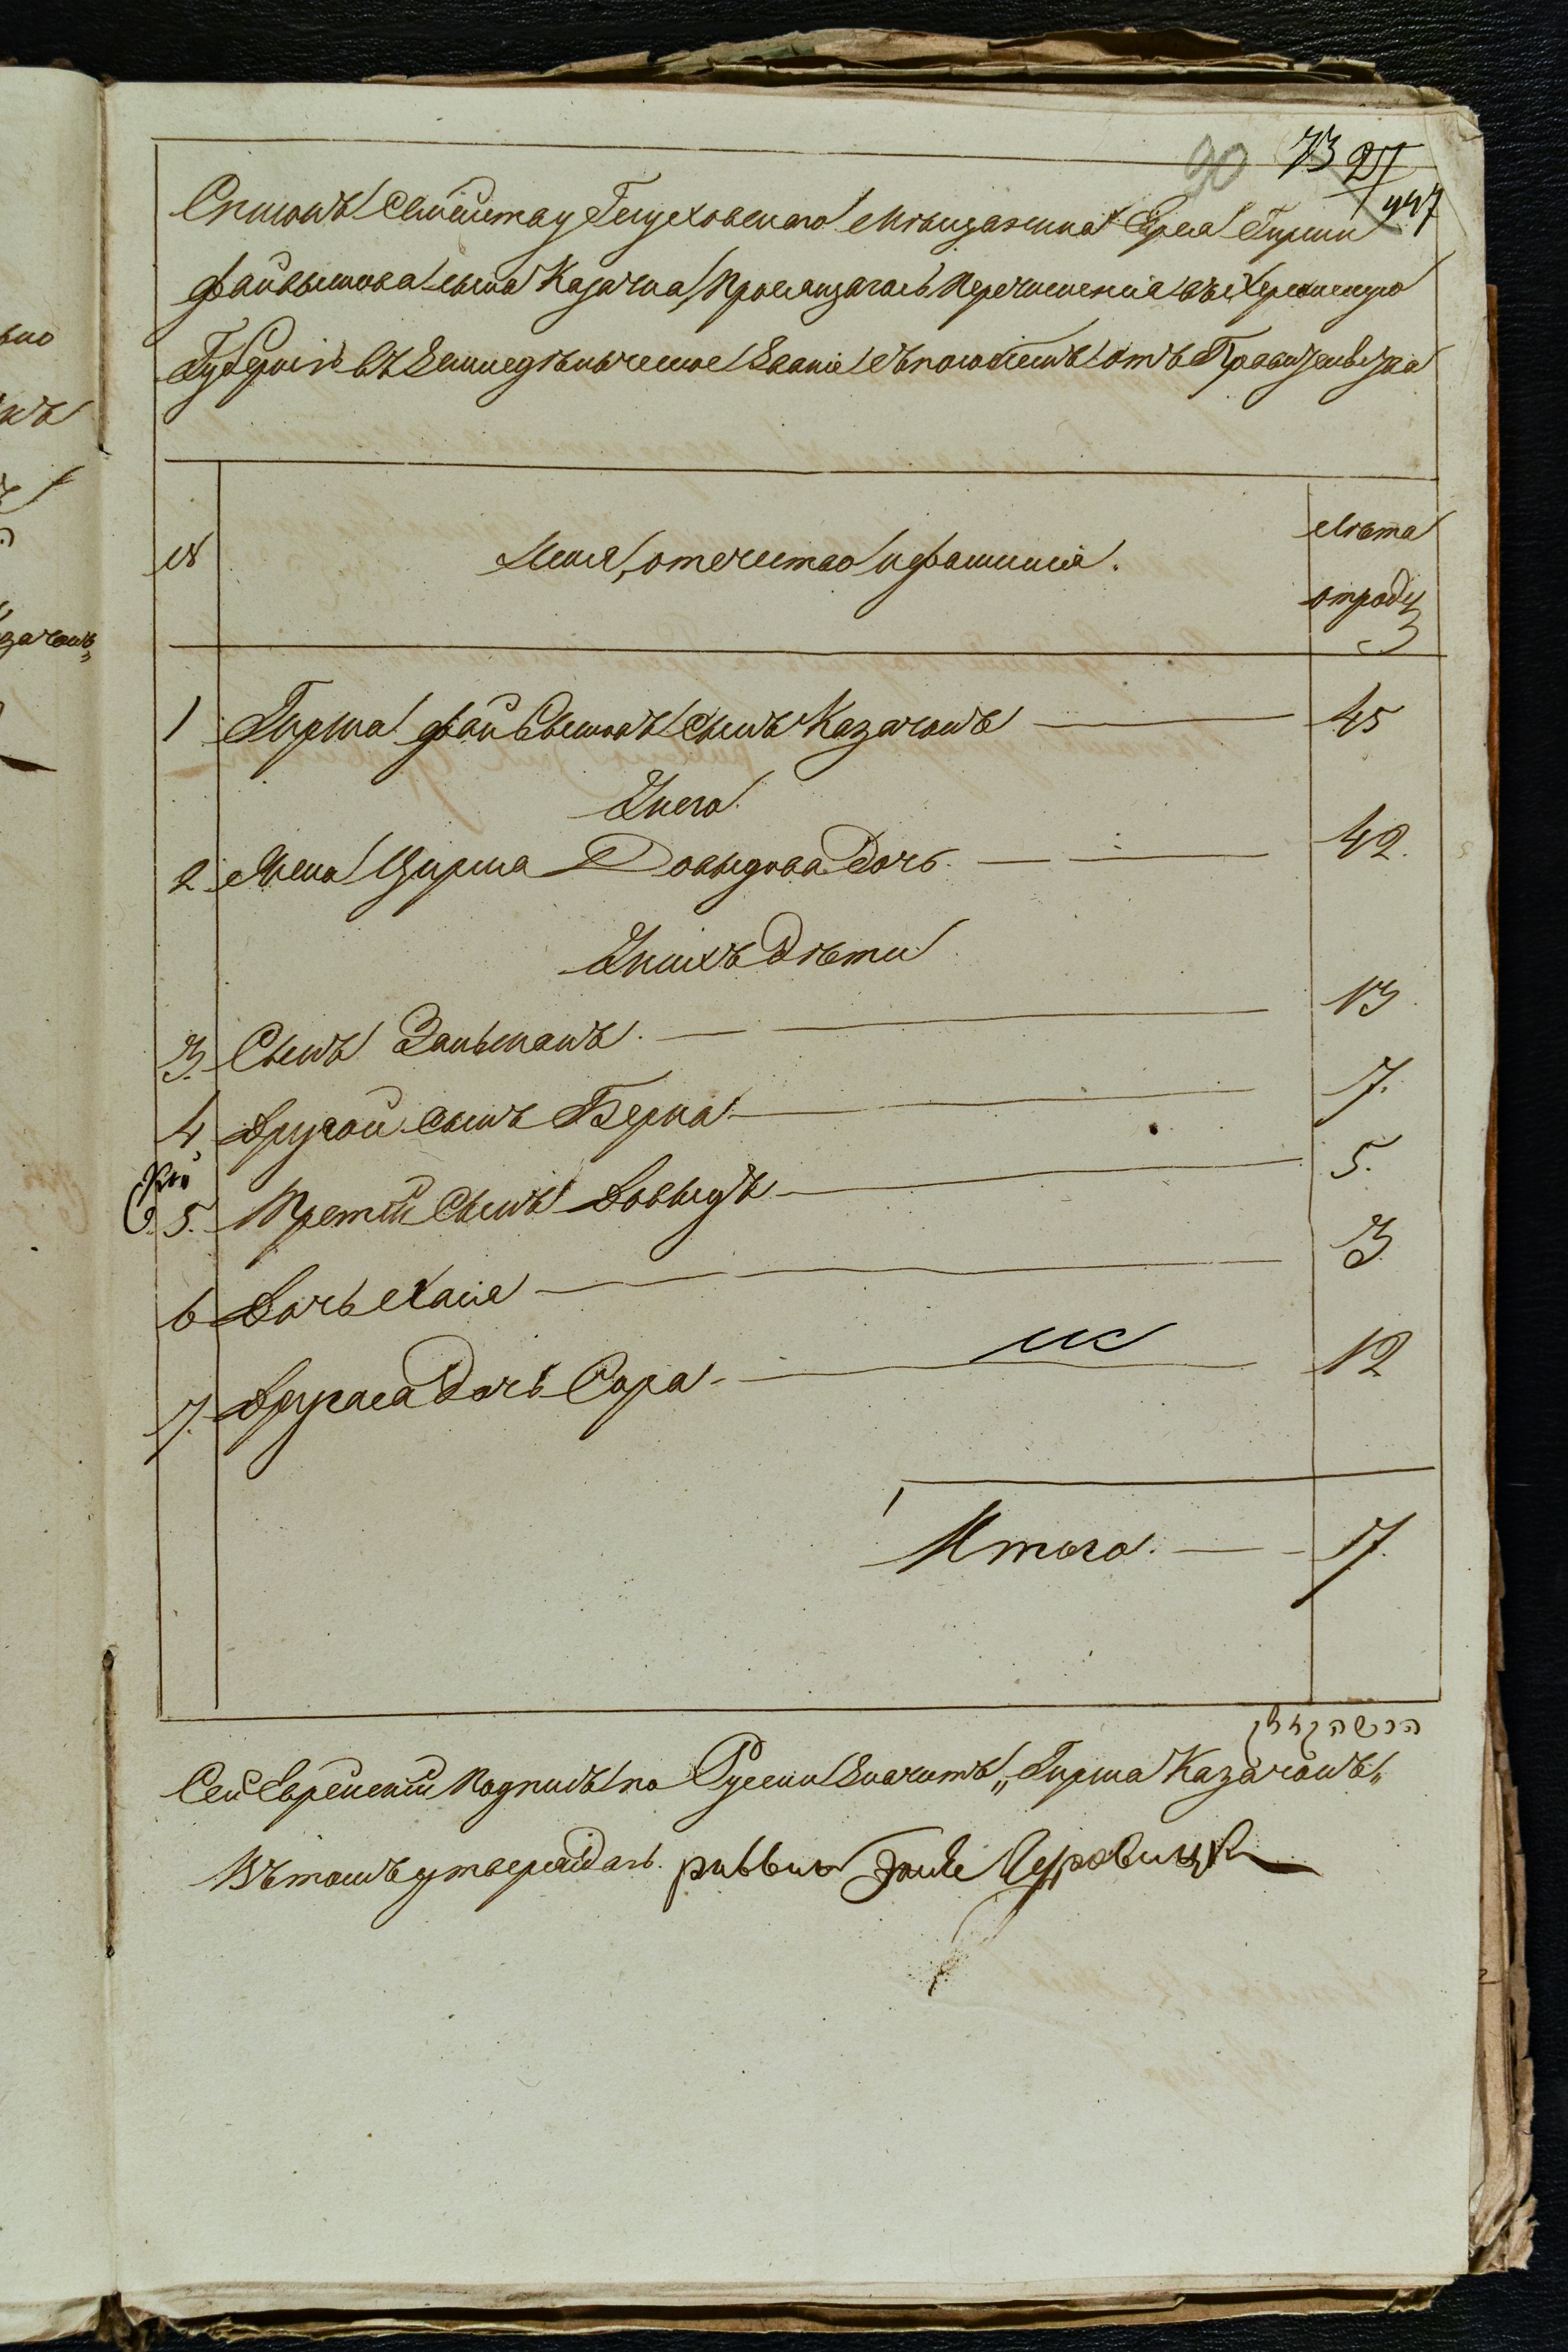 90 73 27
447
Списокъ семейству Глуховского Мѣщанина Еврея Гирши
Файвышова сына Казачка, просящагось перечисленія въ Херсонскую
Губернію въ Земледѣльческое Званіе съ пособіемъ отъ Правительства
№
Имя, отечество и фамилія.
Лѣта
отроду
1 Гирша Файвышовъ сынъ Казачокъ — 45
У него
2. Жена Цирша Довыдова дочь. — — 42.
У нихъ дѣти
3. Сынъ Зальманъ. — — 13
4, Другой сынъ Берка — — 7.
5. Третій сынъ Довыдъ — 5.
6 Дочь Хася — — 3
7. Другая дочь Сора — — 12
Итого. — — 7.
הירשה
Сей Еврейскій подпись по Русски значитъ „Гирша Казачокъ„
Въ томъ утверждаю. раввинъ